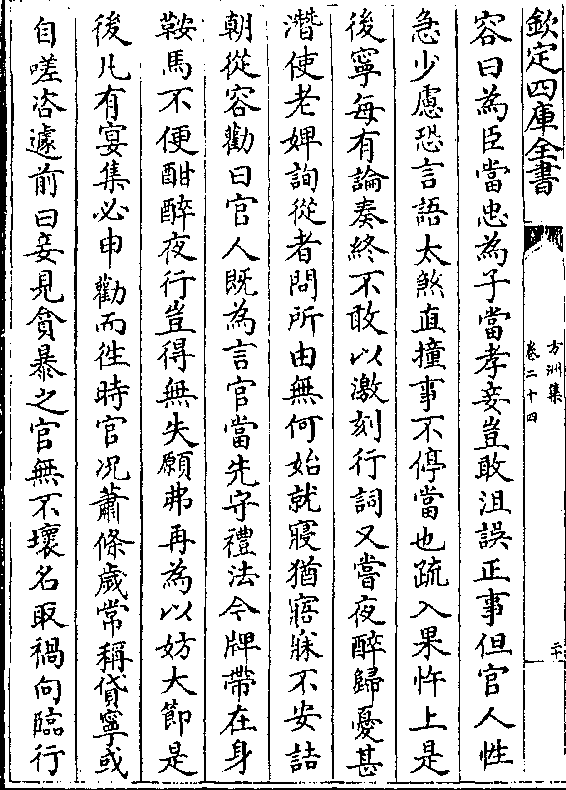 欽定四庫全書
方洲集
卷二十四
二十
容曰為臣當忠為子當孝妾豈敢沮誤正事但官人性
急少慮恐言語太煞直撞事不停當也疏入果忤上是
後寧每有論奏終不敢以激刻行詞又嘗夜醉歸憂甚
潛使老婢詢從者問所由無何始就寢猶寤寐不安詰
朝從容勸曰官人既為言官當先守禮法今牌帶在身
鞍馬不便酣醉夜行豈得無失願弗再為以妨大節是
後凡有宴集必申勸而徃時官况蕭條歲常稱貸寧或
自嗟咨遽前曰妾見貪暴之官無不壊名取禍向臨行